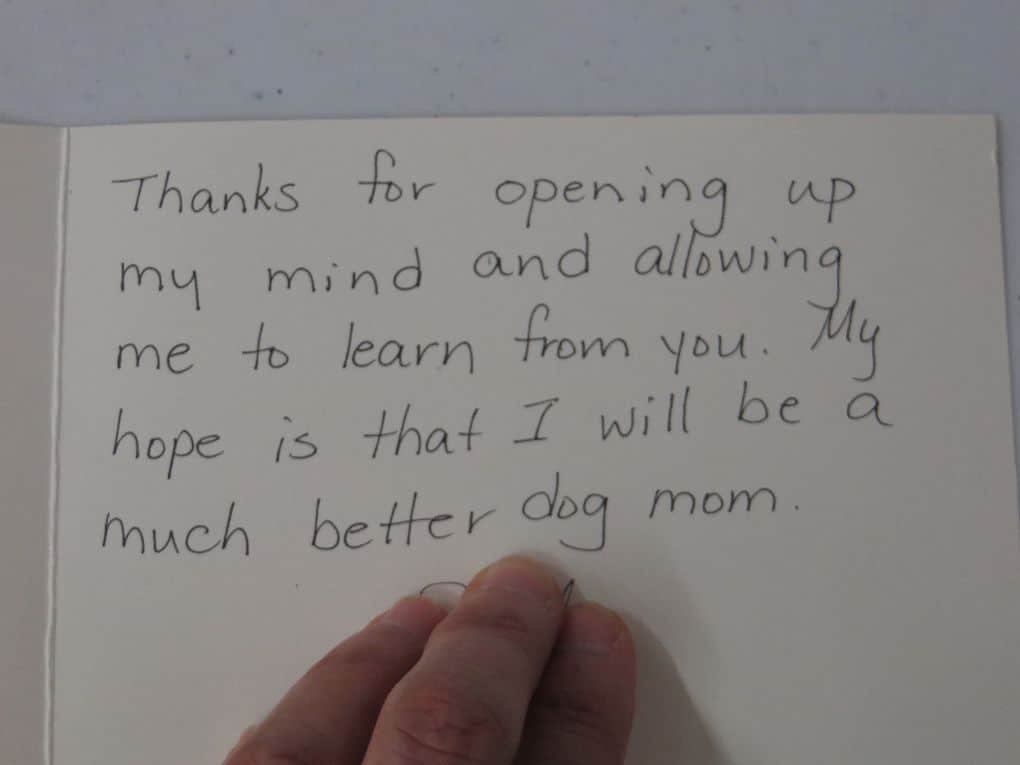 Thanks for opening up
my mind and allowing
me to learn from you. My
hope is that I will be a
much better dog mom.